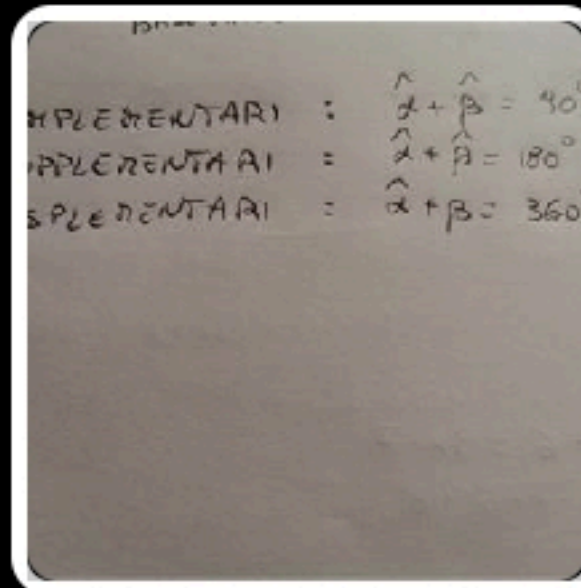 MPLEMENTARI : α̂ + β̂ = 90°
PPLEMENTARI = α̂ + β̂ = 180°
SPLEMENTARI = α̂ + β = 360